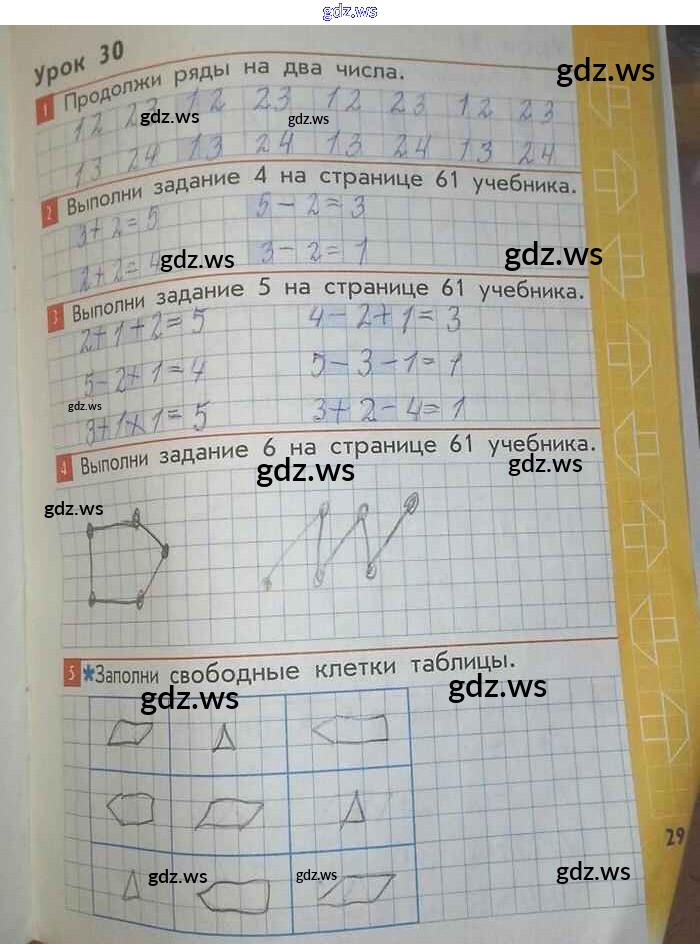 gdz.ws
Урок 30
gdz.ws
1 Продолжи ряды на два числа.
12 23 12 23 12 23 12 23
gdz.ws gdz.ws
13 24 13 24 13 24 13 24
2 Выполни задание 4 на странице 61 учебника.
3+2=5 5-2=3
2+2=4 3-2=1
gdz.ws gdz.ws
3 Выполни задание 5 на странице 61 учебника.
2+1+2=5 4-2+1=3
5-2+1=4 5-3-1=1
gdz.ws
3+1+1=5 3+2-4=1
4 Выполни задание 6 на странице 61 учебника.
gdz.ws gdz.ws
gdz.ws
5 *Заполни свободные клетки таблицы.
gdz.ws gdz.ws
29
gdz.ws gdz.ws gdz.ws